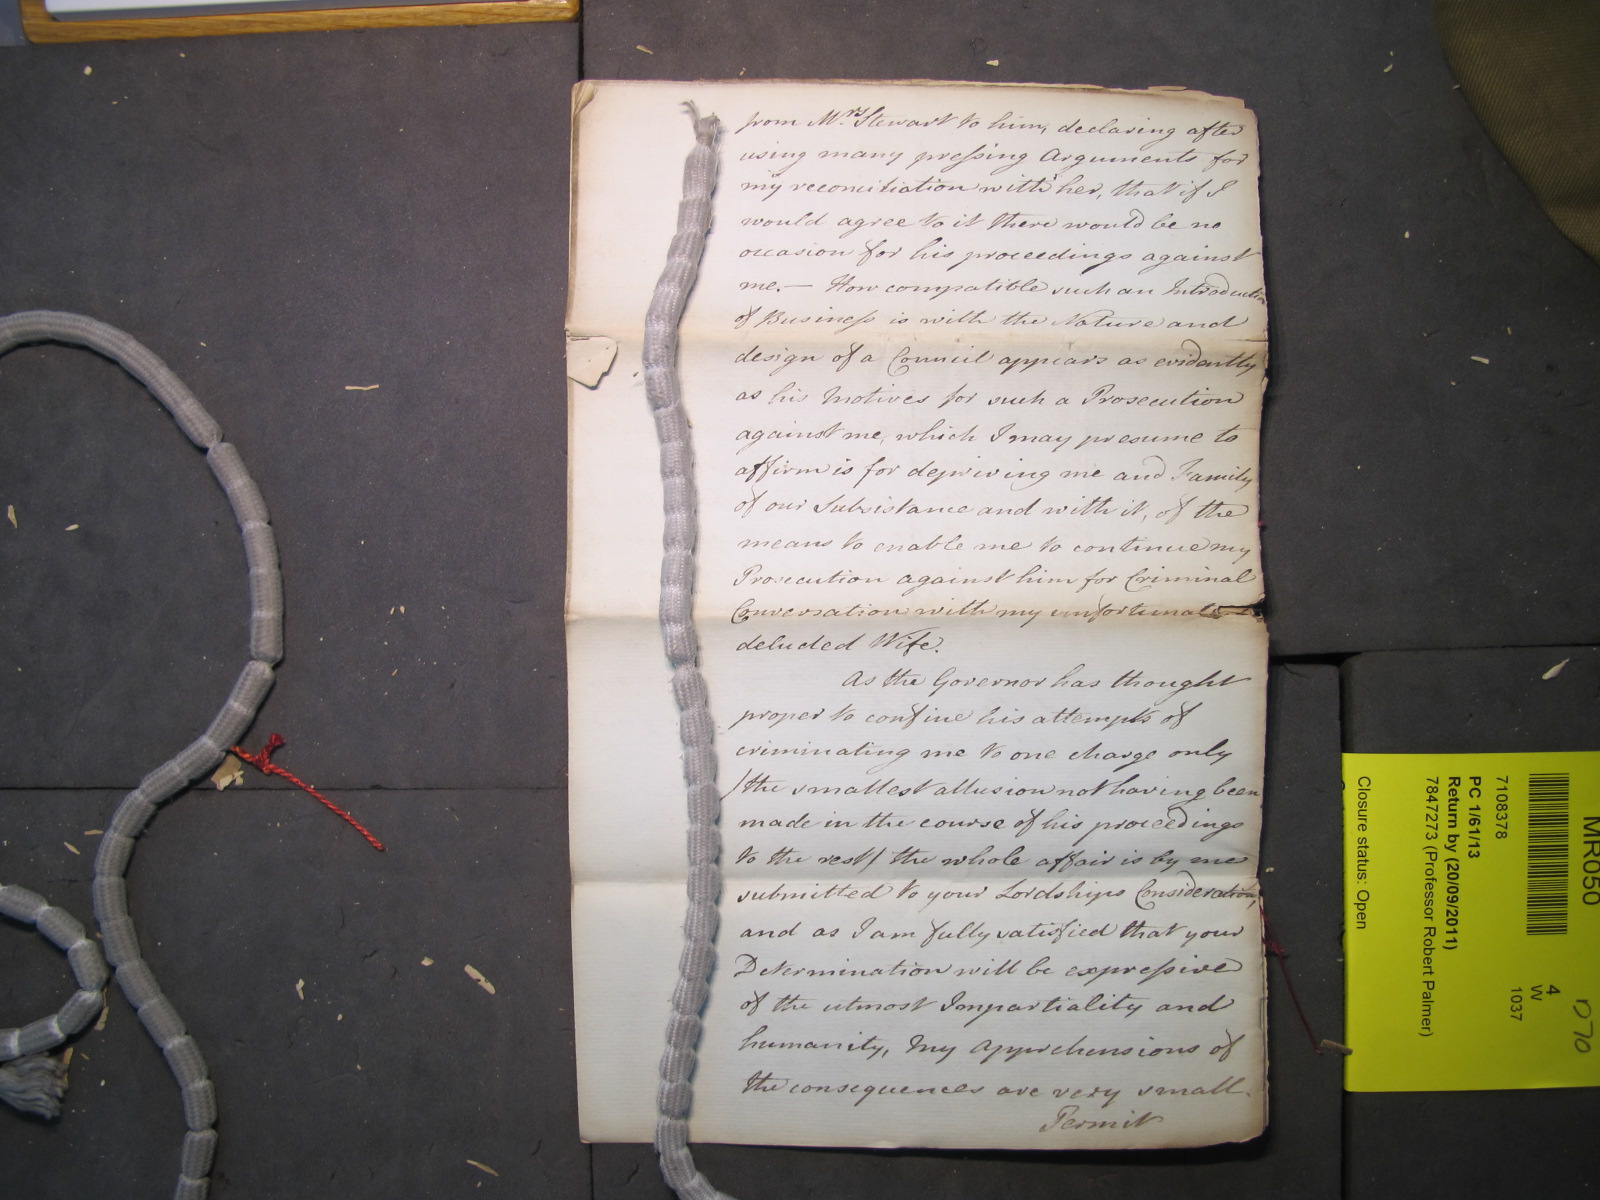 from Mrs Stewart to him, declaring after
using many pressing Arguments for
my reconciliation with her, that if I
would agree to it there would be no
occasion for his proceedings against
me.— How compatible such an Introduction
of Business is with the Nature and
design of a Council appears as evidently
as his Motives for such a Prosecution
against me, which I may presume to
affirm is for depriving me and Family
of our Subsistance and with it, of the
means to enable me to continue my
Prosecution against him for Criminal
Conversation with my unfortunate
deluded Wife.
As the Governor has thought
proper to confine his attempts of
criminating me to one charge only
/the smallest allusion not having been
made in the course of his proceedings
to the rest/ the whole affair is by me
submitted to your Lordships Consideration,
and as I am fully satisfied that your
Determination will be expressive
of the utmost Impartiality and
humanity, My Apprehensions of
the consequences are very small.
Permit
MR050
4
W
1037
D70
7108378
PC 1/61/13
Return by (20/09/2011)
7847273 (Professor Robert Palmer)
Closure status: Open